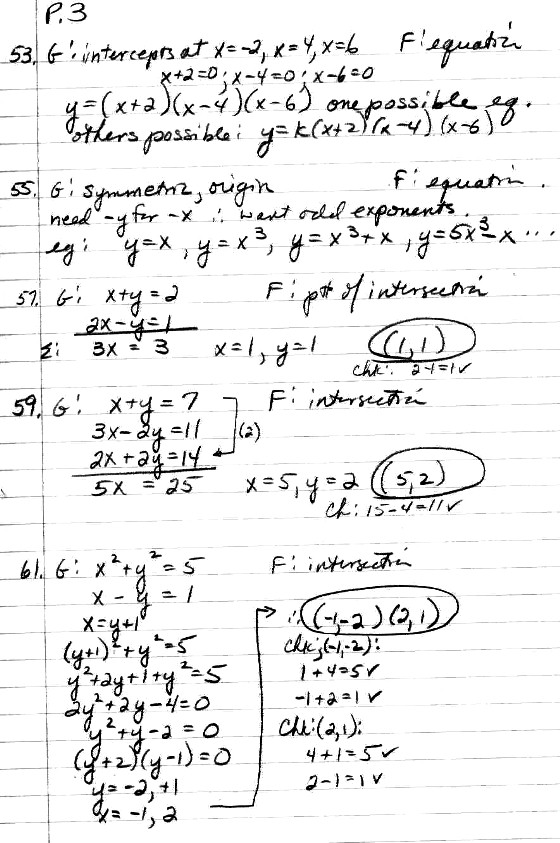 P.3
53. G: intercepts at x=-2, x=4, x=6 F: equation
x+2=0; x-4=0; x-6=0
y=(x+2)(x-4)(x-6) one possible eq.
others possible: y=k(x+2)(x-4)(x-6)
55. G: symmetric, origin F: equation.
need -y for -x ∴ want odd exponents.
eg: y=x, y=x³, y=x³+x, y=5x³-x ...
57. G: x+y=2 F: pt of intersection
2x-y=1
Σ: 3x = 3 x=1, y=1 (1,1)
chk: 2-1=1✓
59. G: x+y=7 F: intersection
3x-2y=11 (2)
2x+2y=14
5x = 25 x=5, y=2 (5,2)
ch: 15-4=11✓
61. G: x²+y²=5 F: intersection
x-y=1
x=y+1 ∴ (-1,-2) (2,1)
(y+1)²+y²=5 chk: (-1,-2):
y²+2y+1+y²=5 1+4=5✓
2y²+2y-4=0 -1+2=1✓
y²+y-2=0 Chk: (2,1):
(y+2)(y-1)=0 4+1=5✓
y=-2, +1 2-1=1✓
x=-1, 2